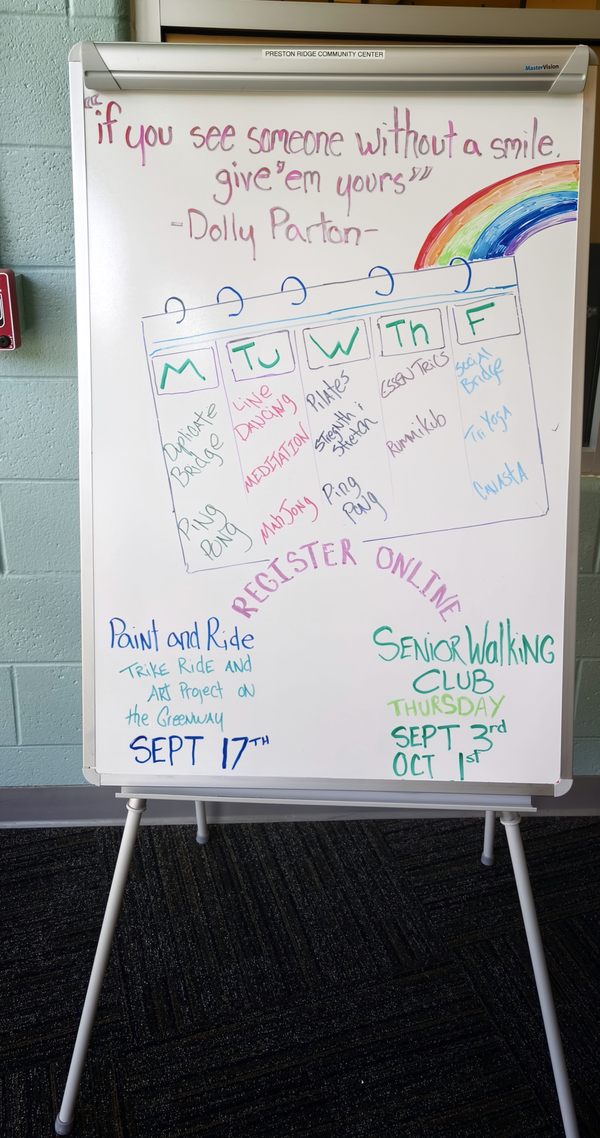 PRESTON RIDGE COMMUNITY CENTER
MasterVision
"if you see someone without a smile,
give "em yours""
-Dolly Parton-
M
Duplicate
Bridge
Ping
Pong
Tu
Line
Dancing
MEDITATION
MahJong
W
Pilates
Strength &
Stretch
Ping
Pong
Th
ESSENTRICS
Rummikub
F
Social
Bridge
Tri Yoga
Canasta
REGISTER ONLINE
Paint and Ride
Trike Ride and
Art Project on
the Greenway
SEPT 17TH
SENIOR WALKING
CLUB
THURSDAY
SEPT 3rd
OCT 1st